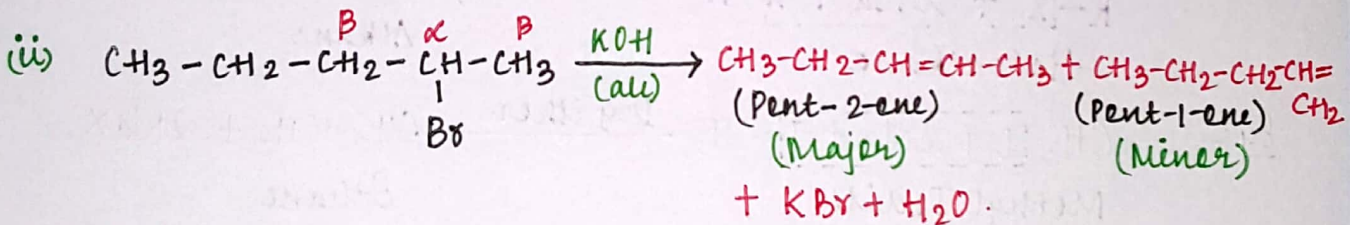 β α β
(ii) CH3 - CH2 - CH2 - CH - CH3 KOH (alc) → CH3-CH2-CH=CH-CH3 + CH3-CH2-CH2-CH=
|
Br
(Pent-2-ene) (Pent-1-ene) CH2
(Major) (Minor)
+ KBr + H2O.